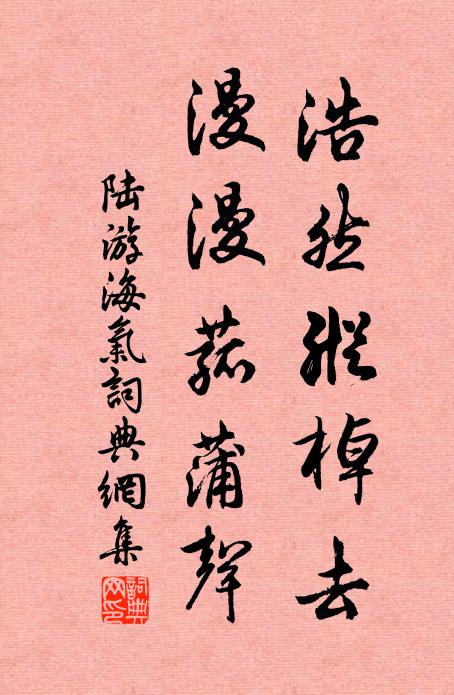 浩然縱棹去
漫漫菰蒲聲
陸游海氣詞典網集
詞典网印